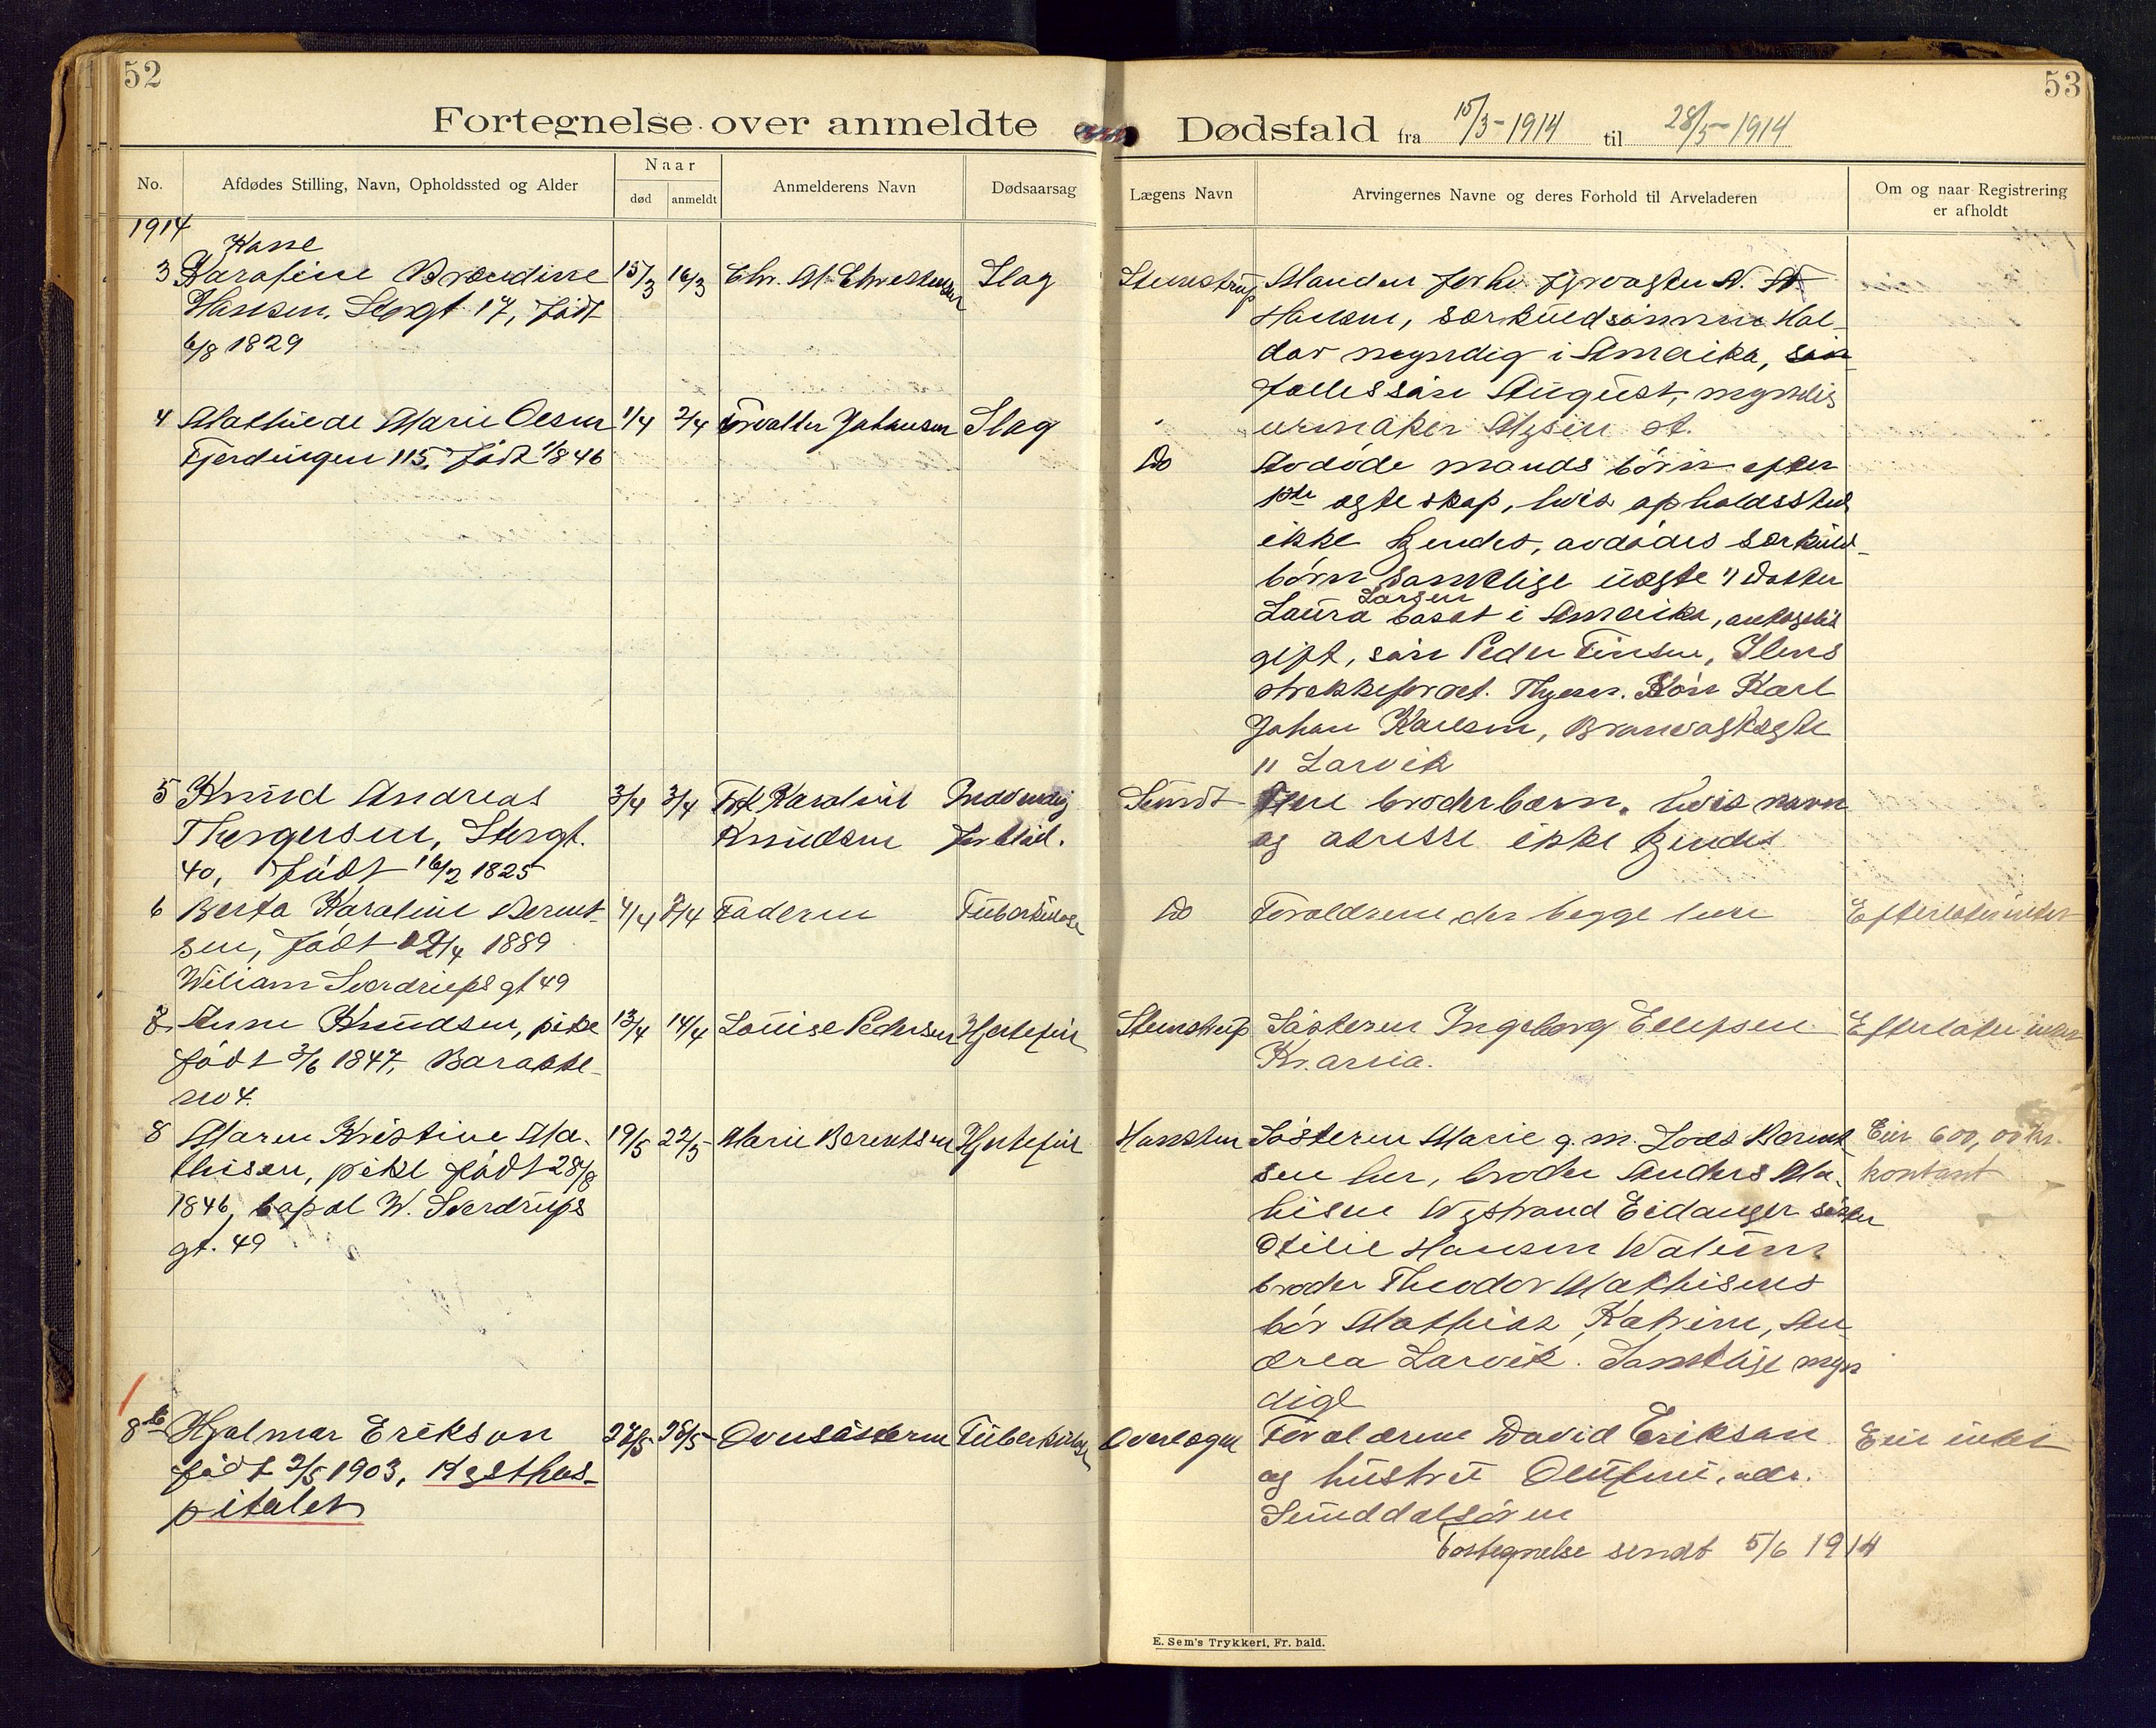 52
53
Fortegnelse over anmeldte Dødsfald fra 15/3-1914 til 28/5-1914
No.
Afdødes Stilling, Navn, Opholdssted og Alder
Naar
død
anmeldt
Anmelderens Navn
Dødsaarsag
Lægens Navn
Arvingernes Navne og deres Forhold til Arveladeren
Om og naar Registrering
er afholdt
1914
Kone
3 Karoline Brændine 15/3 16/3 Chr. M. Christensen Slag
Hansen. Storgt 17, født
6/8 1829
4 Mathilde Marie Olsen 1/4 2/4 Forvalter Johansen Slag
Fjerdingen 115. født 1/8 46
5 Knud Andreas 3/4 3/4 Frk Karoline Indvendig
Thorgersen, Storgt. Knudsen forblød.
40, født 16/2 1825
6 Berta Karoline Bernt- 4/4 7/4 Faderen Tuberkulose
sen, født 2/4 1889
Wiliam Sverdrups gt 49
7 Anne Knudsen, pike 13/4 14/4 Louise Pedersen Hjertefeil
født 3/6 1847, Barakke
no 4.
8 Maren Kristine Ma- 19/5 22/5 Marie Berentsen Hjertefeil
thisen, pike født 28/8
1846, bopæl W. Sverdrups
gt. 49
8b Hjalmar Erikson 28/5 28/5 Oversøsteren Tuberkulose
født 2/5 1903, Kysthos-
pitalet
Stenstrup Manden forhv. fyrvogter N. N.
Hansen, særkuldsønnen Hal-
dor myndig i Amerika, søn
fællessøn August, myndig
urmaker Mysen st.
Do Avdøde mands børn efter
1ste egteskap, hvis opholdssted
ikke kjendes, avdødes særkuld-
børn samtlige uegte 1) datter
Larsen
Laura bosat i Amerika, antagelig
gift, søn Peder Finsen,
Søn Karl
Johan Karlsen,
" Larvik
Sundt Flere broderbørn, hvis navn
og adresse ikke kjendes
Do Forældrene der begge lever Efterlater intet
Stenstrup Søsteren Ingeborg Ellefsen Efterlater intet
Kr.ania.
Hansteen Søsteren Marie g. m. Lods Bernt Eier 600,00 kr.
sen her, broder Anders Ma- kontant
thisen Nystrand Eidanger søster
Otilie Hansen
broder Theodor Mathisens
bør Mathias, Katrine, An-
drea Larvik. Samtlige myn
dige
Overlægen Forældrene David Erikson Eier intet
og hustru Olufine, adr.
Sunddalsøren
Fortegnelse sendt 5/6 1914
E. Sem's Trykkeri, Fr. hald.